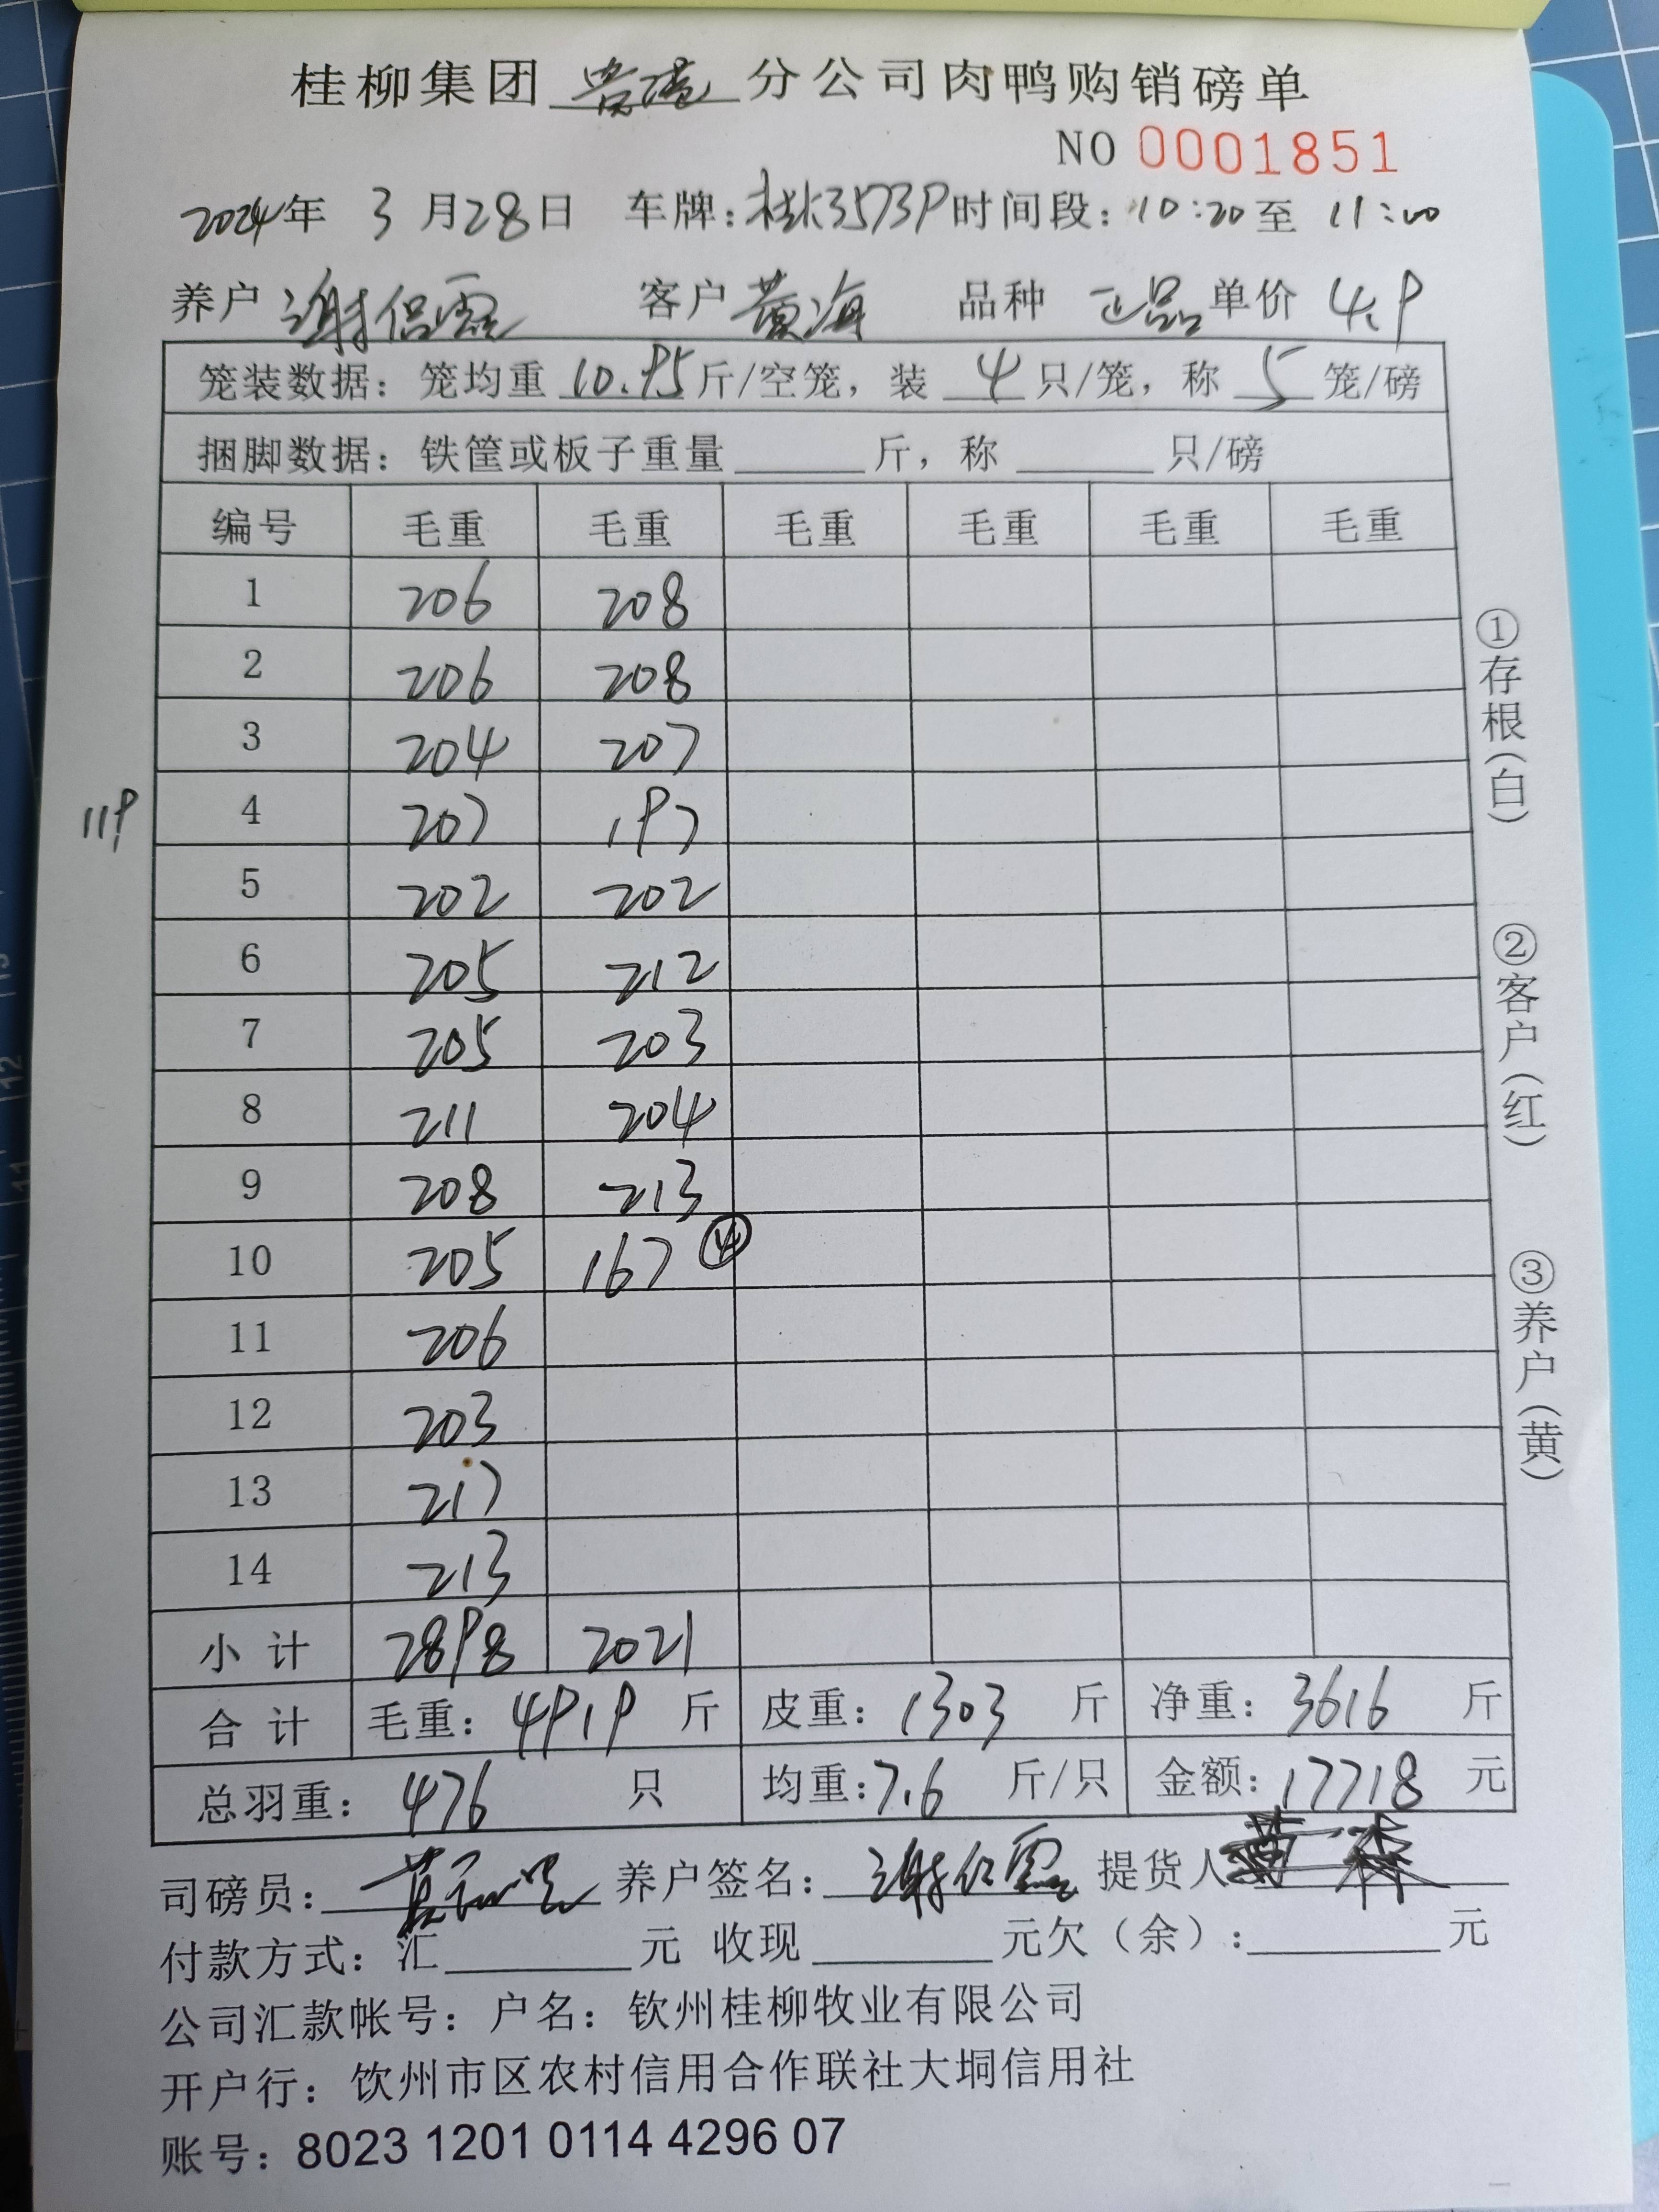 桂柳集团 贵港 分公司肉鸭购销磅单
NO 0001851
2024年 3月28日 车牌:桂K3573P 时间段:10:20至 11:00
养户 谢侣霞 客户 黄海 品种 正品 单价 4.9
笼装数据:笼均重 10.95 斤/空笼,装 4 只/笼,称 5 笼/磅
捆脚数据:铁筐或板子重量 斤,称 只/磅
编号 毛重 毛重 毛重 毛重 毛重 毛重
1 206 208
2 206 208
3 204 207
119
4 207 197
5 202 202
6 205 212
7 205 203
8 211 204
9 208 213
10 205 167 ④
11 206
12 203
13 217
14 213
小计 2898 2021
合计 毛重:4919 斤 皮重:1303 斤 净重:3616 斤
总羽重:476 只 均重:7.6 斤/只 金额:17718 元
①存根(白)
②客户(红)
③养户(黄)
司磅员: 养户签名: 提货人
付款方式:汇 元 收现 元欠(余): 元
公司汇款帐号:户名:钦州桂柳牧业有限公司
开户行:饮州市区农村信用合作联社大垌信用社
账号:8023 1201 0114 4296 07